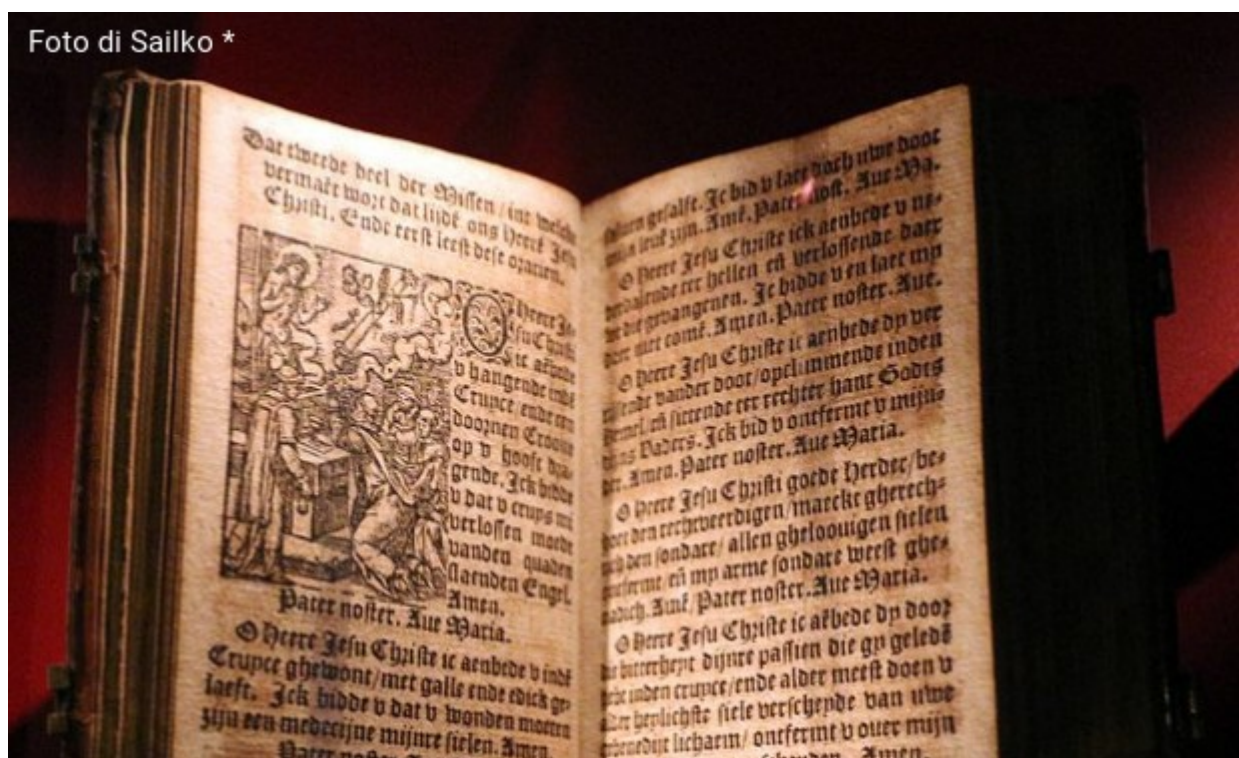 Foto di Sailko *
Dat tweede deel der Missen / int welcke
vermaēt wort dat lijdē ons Heerē Jesu
Christi. Ende eerst leest dese oratien.
O Heere Je-
su Christe
ic aēbede
v hangende indē
Cruyce ende een
doornen Croone
op v hooft dra-
gende. Ick bidde
v dat v cruys mi
verlossen moede
vanden quaden
slaenden Engel.
Amen.
Pater noster. Aue Maria.
O Heere Jesu Christe ic aenbede v indē
Cruyce ghewont / met galle ende edick ge-
laeft. Ick bidde v dat v wonden moeten
zijn een medecijne mijnre sielen. Amen.
Pater noster.
gesalft. Ic bid v laet doch uwe doot
mijn leuē zijn. Amē. Pater nost. Aue Ma.
O Heere Jesu Christe ick aenbede v ne-
derdalende ter hellen eñ verlossende daer
die gevangenen. Ic bidde v en laet my
daer niet comē. Amen. Pater noster. Aue.
O Heere Jesu Christe ic aenbede dy ver
rijsende vander doot / opclimmende inden
hemel / eñ sittende ter rechter hant Godts
Vaders. Ick bid v ontfermt v mijn-
der. Amen. Pater noster. Aue Maria.
O Heere Jesu Christi goede Herder / be-
hoet den rechtveerdigen / maeckt gherech-
den sondare / allen gheloouigen sielen
ontferme / eñ my arme sondare weest ghe-
nadich. Amē. Pater noster. Aue Maria.
O Heere Jesu Christe ic aēbede dy door
die bitterheyt dijnre passien die gy geledē
hebt inden cruyce / ende alder meest doen v
alder heylichste siele verscheyde van uwe
ghebenedijt lichaem / ontfermt v ouer mijn
Amen.